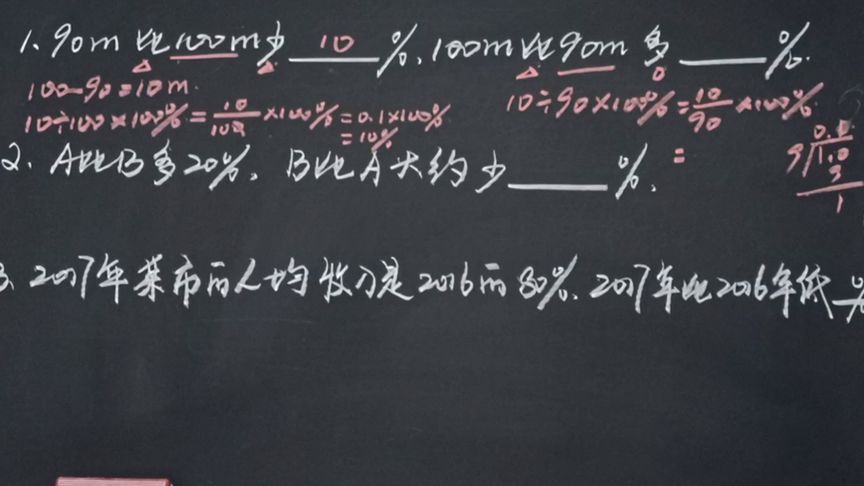 1. 90m比100m少 10 %, 100m比90m多____%.
100-90=10m.
10÷100×100%=10/100×100%=0.1×100%
=10%
10÷90×100%=10/90×100%.
=
0.1
9 1.0
9
1
2. A比B多20%, B比A大约少____%.
3. 2017年某市的人均收入是2016的80%. 2017年比2016年低__%